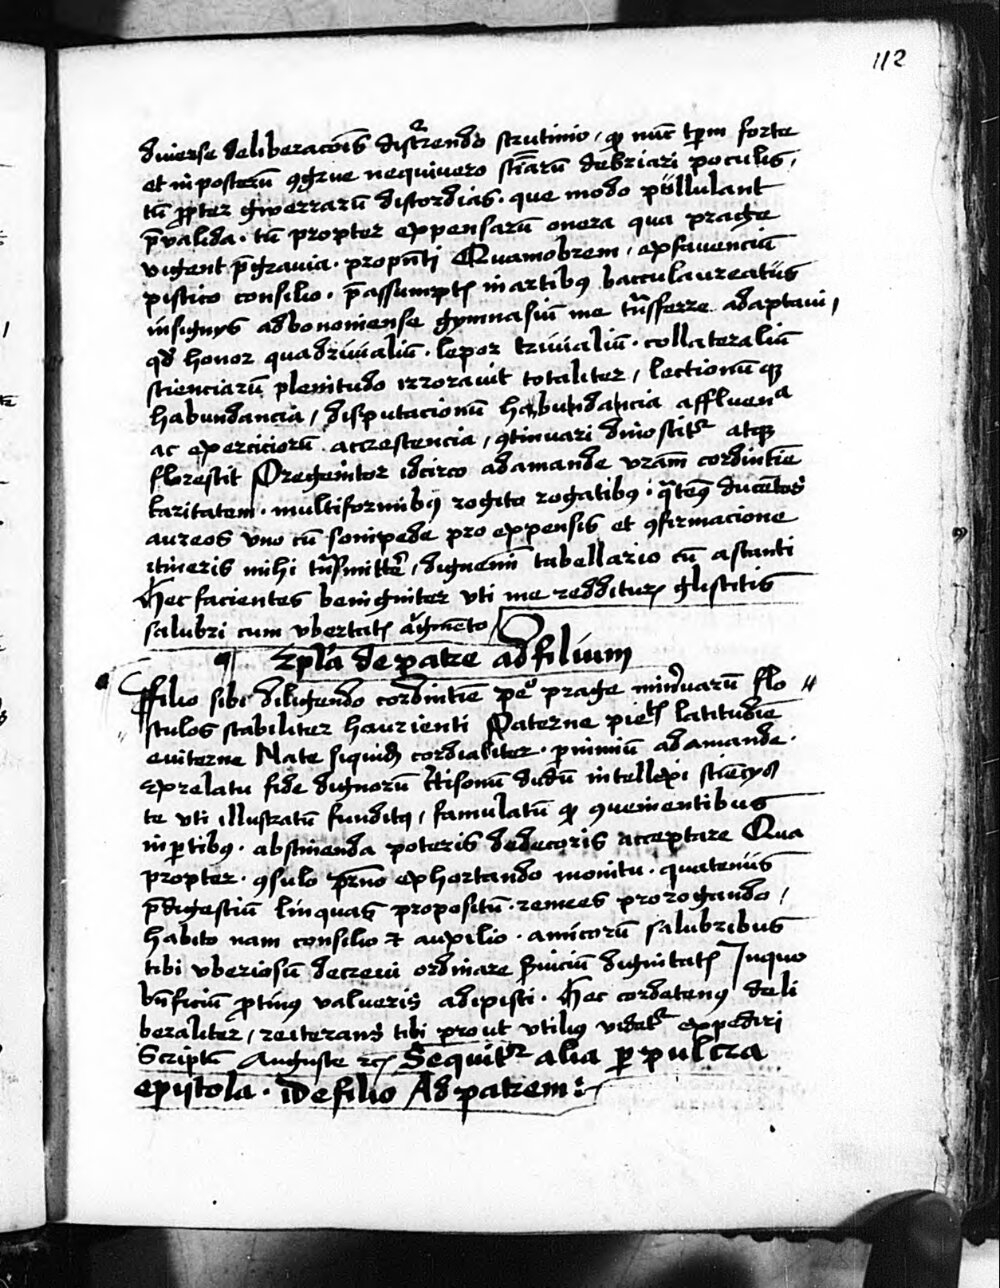 112
diuerse deliberacōis discᵃrendo scrutinio, qꝫ nūc tꝑm forte
et in posterū ꝯgrue nequiuero sciāꝝ debriari poculis,
tū ꝓpter gwerrarū discordias . que modo pullulant
p̄valida . tū propter expensarū onera qua prage
vigent p̄gravia . propn̄ti Quamobrem, exfauenciū
pistico consilio . p̄assumptꝭ in artibꝯ baccalaureatus
insignys ad bononiense gymnasiū me trāsferre adaptaui,
qđ honor quadriuialiū . lepor triuialiū . collateraliū
scienciarū plenitudo irrorauit totaliter, lectionū qꝫ
habundancia, disputacionū habundancia affluenᵃ
ac exerciciorū accrescencia, ꝯtinuari dinoscitᵘʳ atqꝫ
florescit Pregenitor idcirco adamande vrām cordintīe
karitatem . multiformibꝯ rogito rogatibꝯ . qᵃtenꝯ ducētos
aureos vno cū sonipede pro expensis et ꝯfirmacione
itineris mihi trāsmittꝰe, dignemī tabellario cū astanti
Hec facientes benigniter vti me redditurꝭ gliscitis
salubri cum vbertatꝭ augmēto
Epl̄a de patre ad filium
Filio sibi diligendo cordintīe pᵒ prage minꝰuarū flo
sculos stabiliter haurienti Paterne pietꝭ latitudīe
euiterne Nate siquidē cordialiter . pnimiū adamande .
Ex relatu fide dignorū
te vti illustratū funditꝯ, famulatū qꝫ ꝯuenientibus
in ꝑtibꝯ . abstinenda poteris dedecoris acceptare Qua
propter . ꝯsulo p̄rno exhortando monitu . quatenus
p̄digestiū linquas propositū . remees prorogando,
habito nam consilio et auxilio . amicorū salubribus
tibi vberiosū decreui ordinare ꝑuiciū dignitatꝭ In quo
bn̄ficiū ꝓtinꝯ valueris adipisci . Hec cordatenꝯ deli
beraliter, reiterans tibi prout vtiliꝯ videtᵘʳ expediri
Scriptū Auguste ꝛcꝭ Sequitᵘʳ alia ꝑpulcra
epistola . De filio Ad patrem :